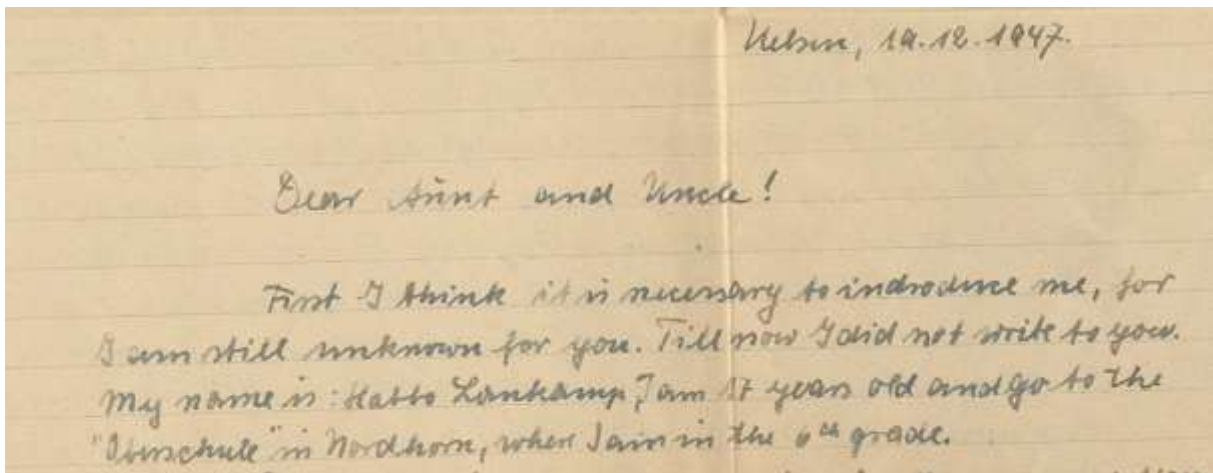 Uelsen, 19.12.1947.
Dear Aunt and Uncle!
First I think it is necessary to indroduce me, for
I am still unknown for you. Till now I did not write to you.
My name is: Hatto Lankamp, I am 17 years old and go to the
"Oberschule" in Nordhorn, where I am in the 6th grade.